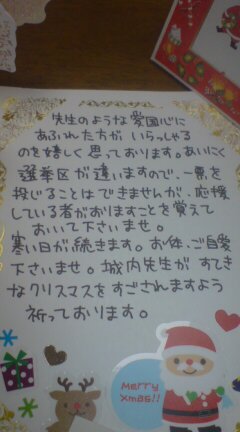 先生のような愛国心に
あふれた方が いらっしゃる
のを嬉しく思っております。あいにく
選挙区が違いますので、一票を
投じることはできませんが、応援
している者がおりますことを覚えて
おいて下さいませ。
寒い日が続きます。お体、ご自愛
下さいませ。城内先生が すてき
なクリスマスをすごされますよう
祈っております。
Merry
Xmas!!